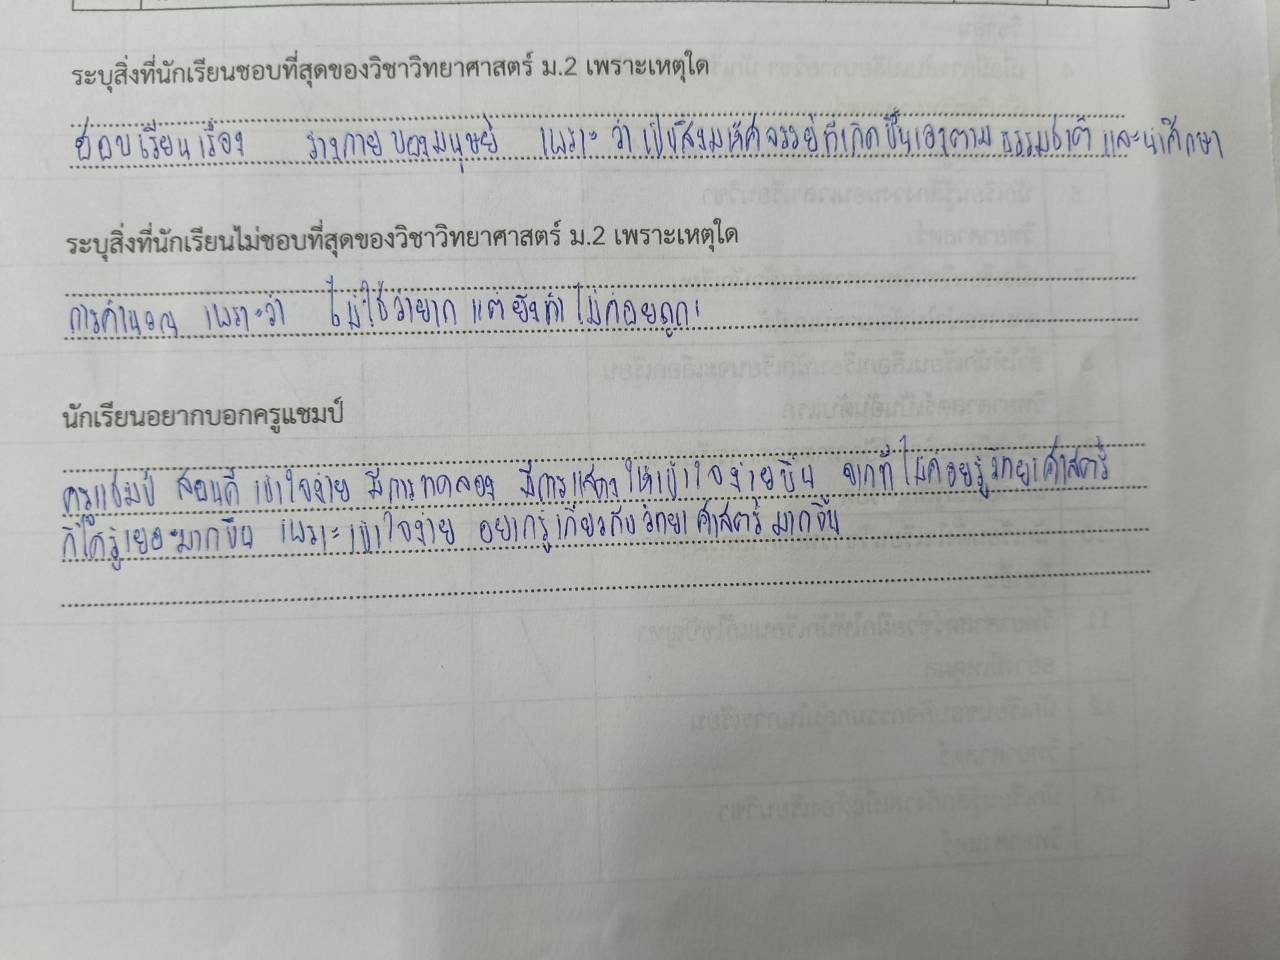 ระบุสิ่งที่นักเรียนชอบที่สุดของวิชาวิทยาศาสตร์ ม.2 เพราะเหตุใด
ชอบเรียนเรื่อง ร่างกายของมนุษย์ เพราะว่าเป็นสิ่งมหัศจรรย์ที่เกิดขึ้นเองตามธรรมชาติ และน่าศึกษา
ระบุสิ่งที่นักเรียนไม่ชอบที่สุดของวิชาวิทยาศาสตร์ ม.2 เพราะเหตุใด
การคำนวณ เพราะว่า ไม่ใช้ว่ายาก แต่ยังทำไม่ค่อยถูก
นักเรียนอยากบอกครูแชมป์
ครูแชมป์ สอนดี เข้าใจง่าย มีการทดลอง มีการแสดงให้เข้าใจง่ายขึ้น จากที่ไม่ค่อยรู้วิทยาศาสตร์
ก็ได้รู้เยอะมากขึ้น เพราะเข้าใจง่าย อยากรู้เกี่ยวกับวิทยาศาสตร์มากขึ้น